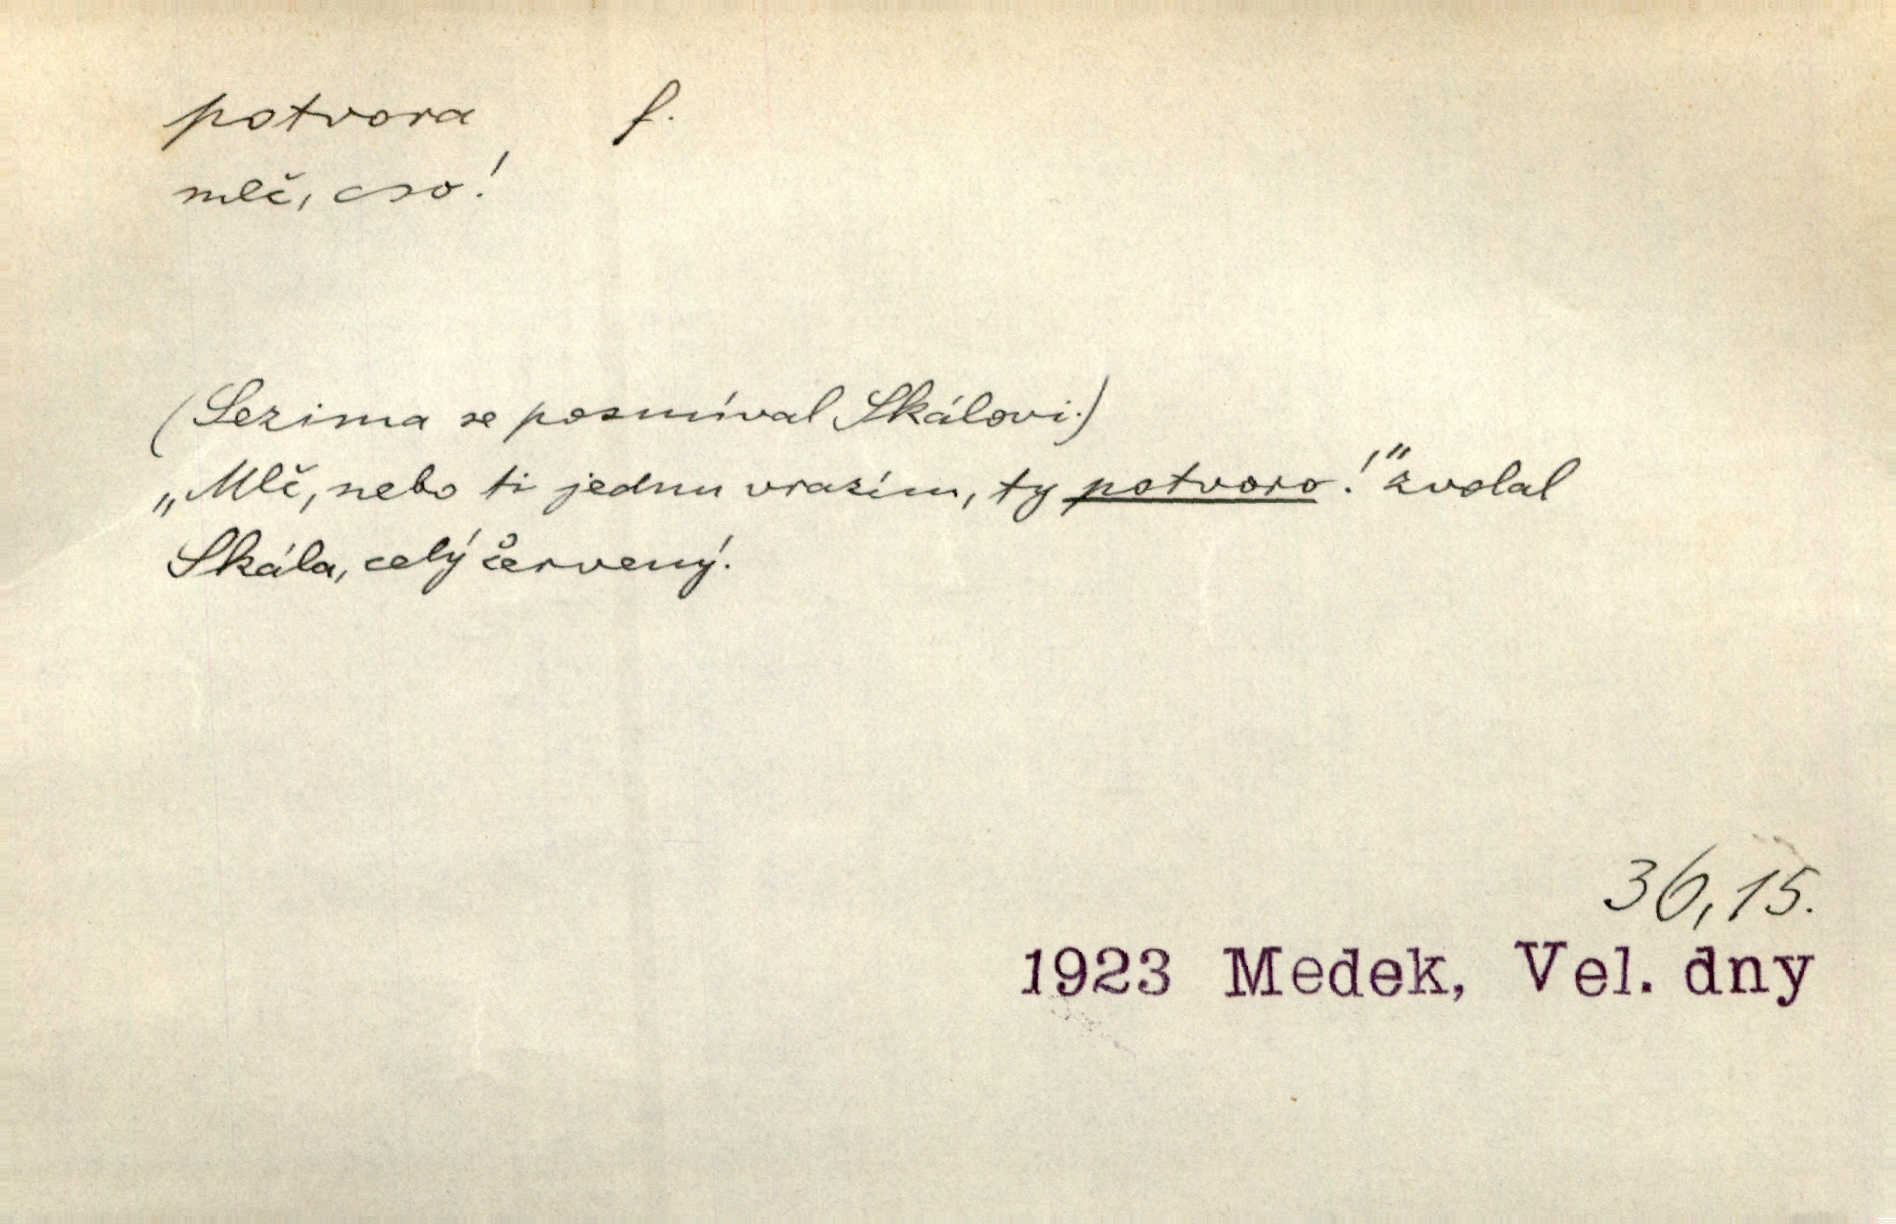 potvora f.
mlč, ~o!
(Sezima se posmíval Skálovi.)
„Mlč, nebo ti jednu vrazím, ty potvoro!" zvolal
Skála, celý červený.
36,15.
1923 Medek, Vel. dny